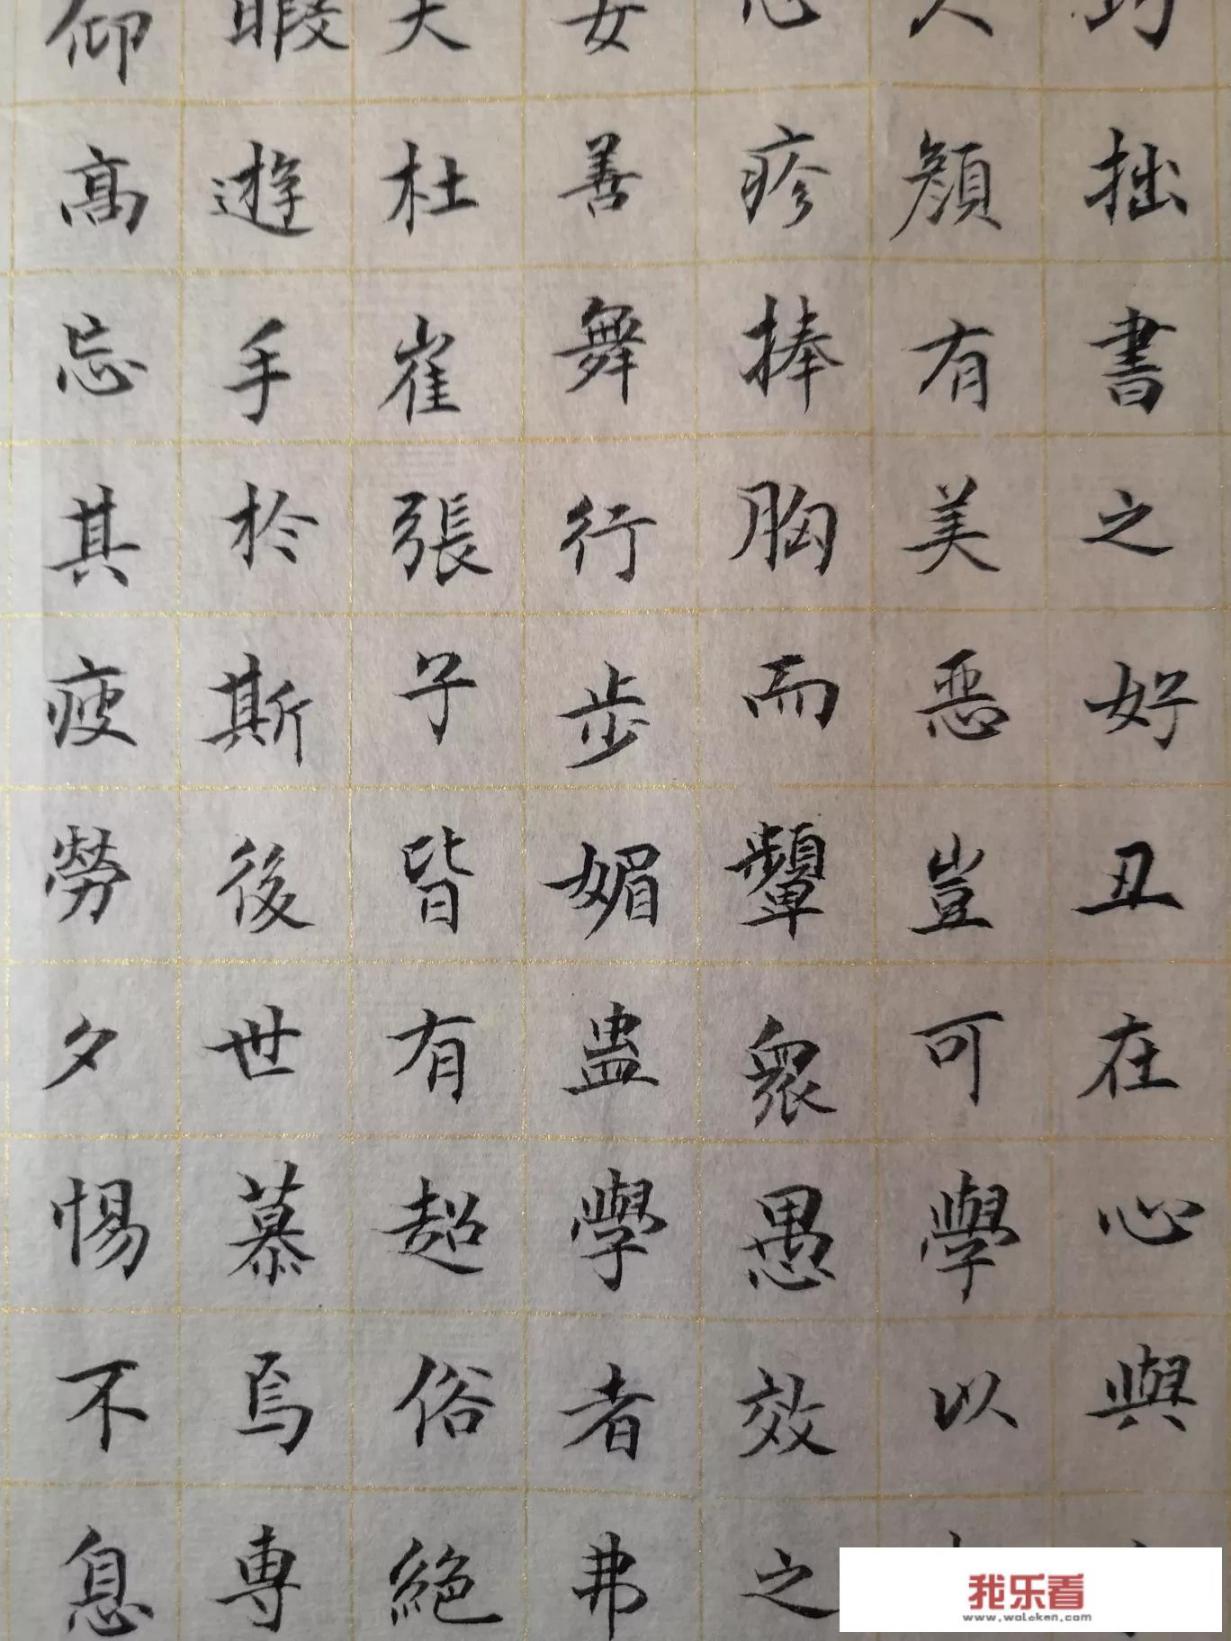 拙書之好丑在心與
人顏有美惡豈可學以
心疹捧胸而顰眾愚效之
女善舞行步媚蠱學者弗
夫杜崔張子皆有超俗絕
暇遊手於斯後世慕焉專
仰高忘其疲勞夕惕不息
我乐看
www.woleken.com